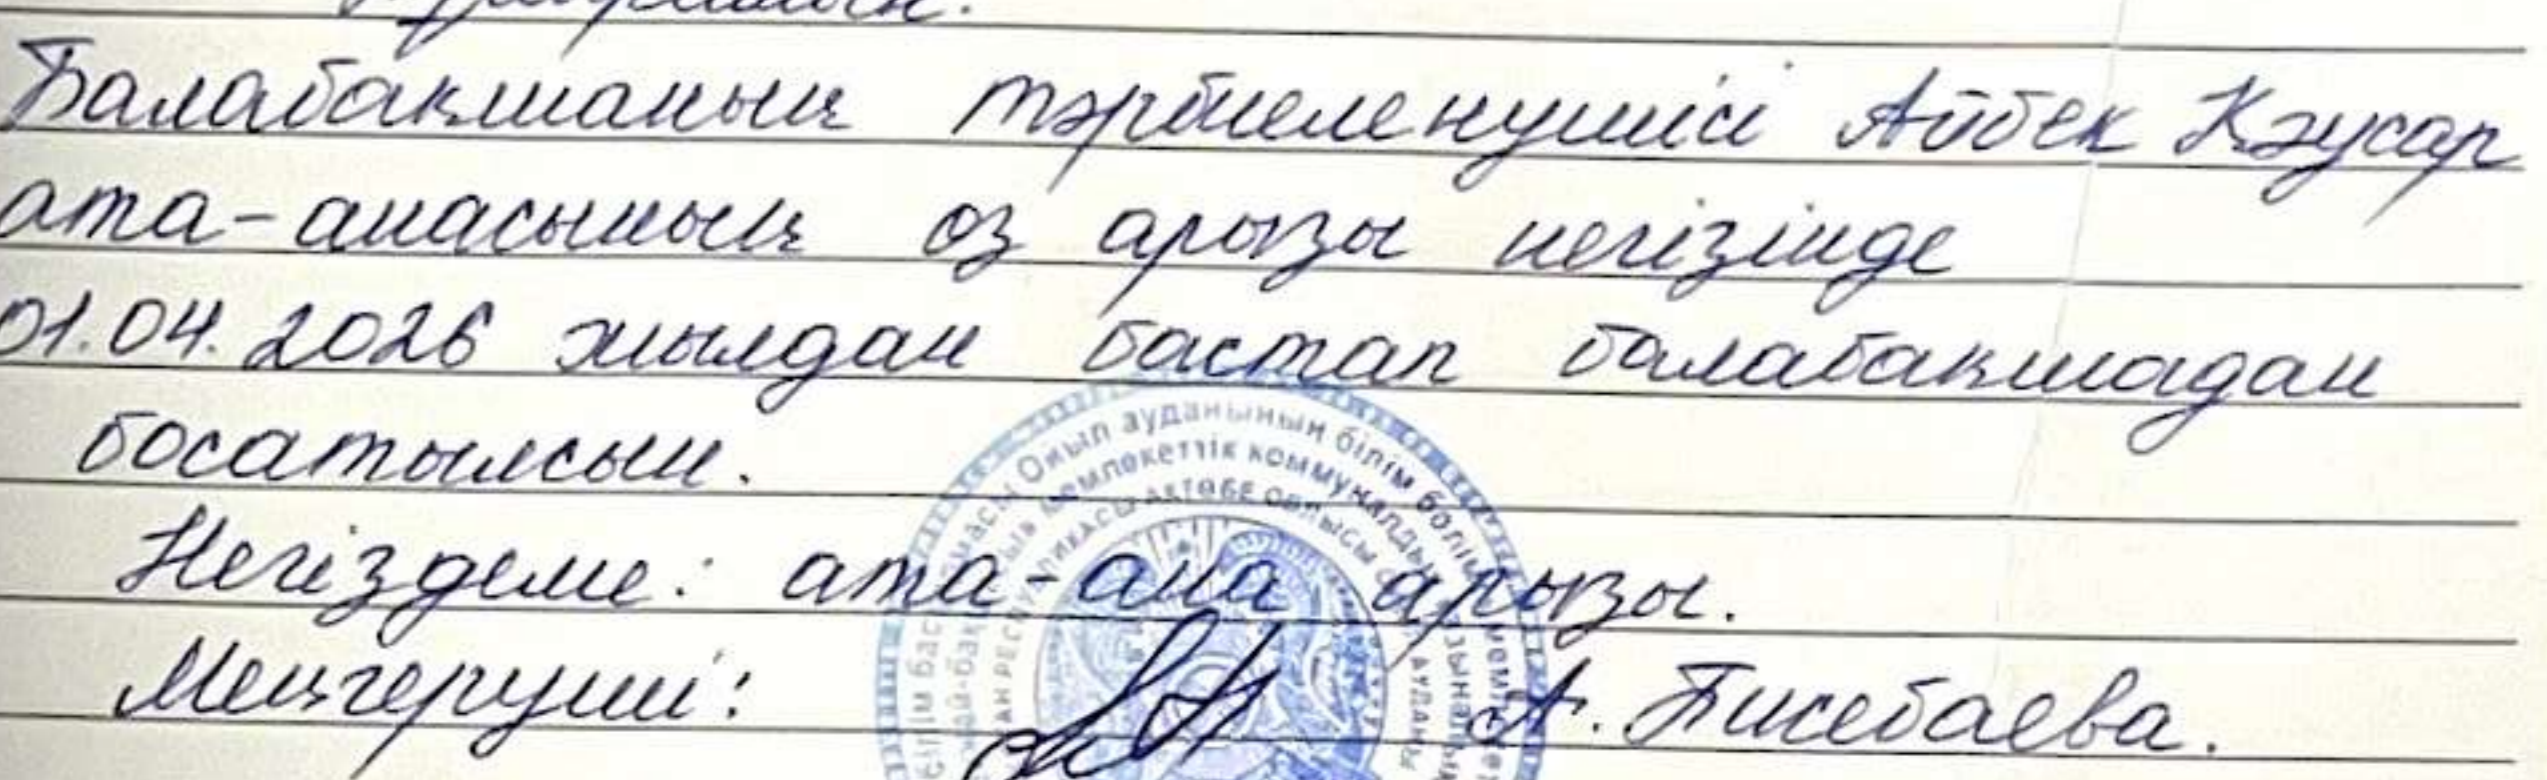 Балабақшаның тәрбиеленушісі Айбек Кәусар
ата-анасының өз арызы негізінде
01.04.2026 жылдан бастап балабақшадан
босатылсын.
Негіздеме: ата-ана арызы.
Меңгеруші:
А. Бисебаева.
Ойыл ауданының білім бөлімі
мемлекеттік коммуналдық
АҚТӨБЕ ОБЛЫСЫ